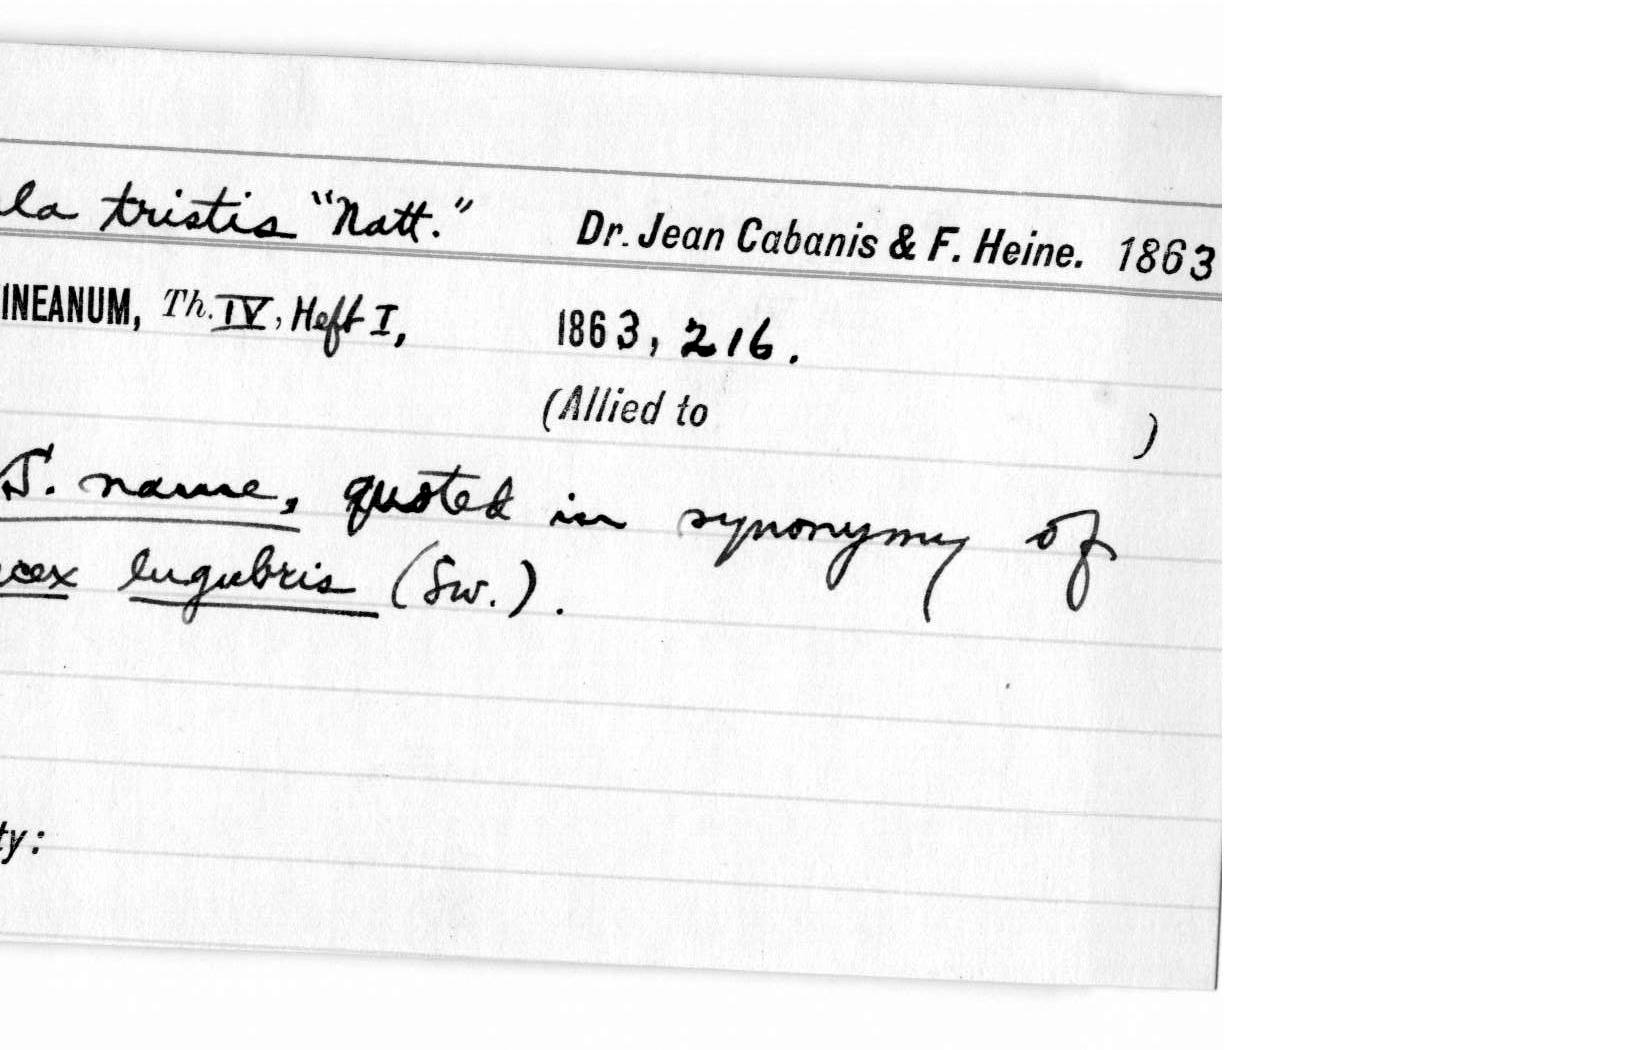 la tristis "Natt." Dr. Jean Cabanis & F. Heine. 1863
INEANUM, Th. IV, Heft I, 1863, 216.
(Allied to )
S. name, quoted in synonymy of
cex lugubris (Sw.).
ty: